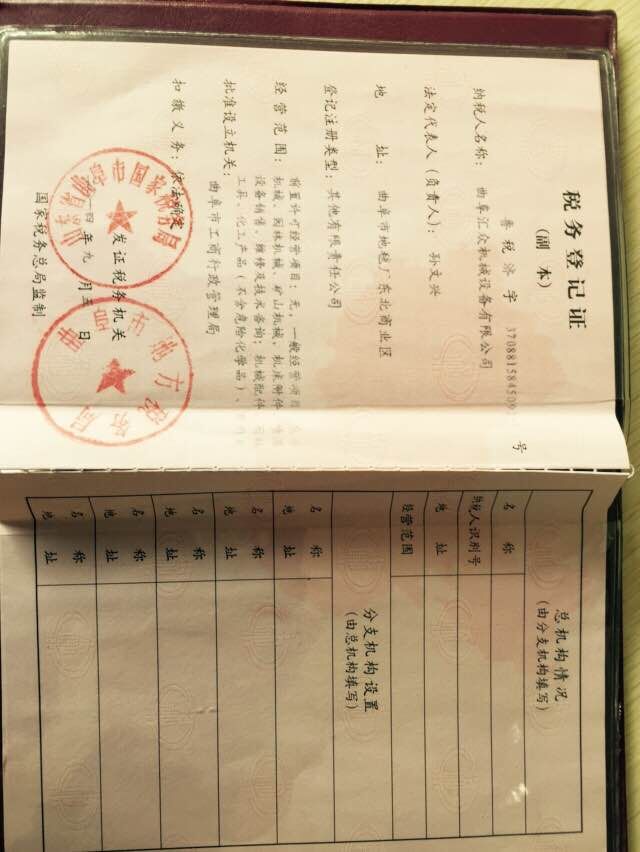 税务登记证
(副本)
鲁税济字 370881584509 号
纳税人名称： 曲阜汇众机械设备有限公司
法定代表人（负责人）： 孙文兴
地 址： 曲阜市地毯厂东北商业区
登记注册类型： 其他有限责任公司
经营范围： 前置许可经营项目：无，一般经营项目
机械、园林机械、矿山机械、机床附件
设备销售、维修及技术咨询；机械配件
工具、化工产品（不含危险化学品）、
批准设立机关： 曲阜市工商行政管理局
扣缴义务： 依法确定
发证税务机关
四年九月五日
国家税务总局监制
总机构情况
(由分支机构填写)
名 称
纳税人识别号
地 址
经营范围
分支机构设置
(由总机构填写)
名 称
地 址
名 称
地 址
名 称
地 址
名 称
地 址
名 称
地 址